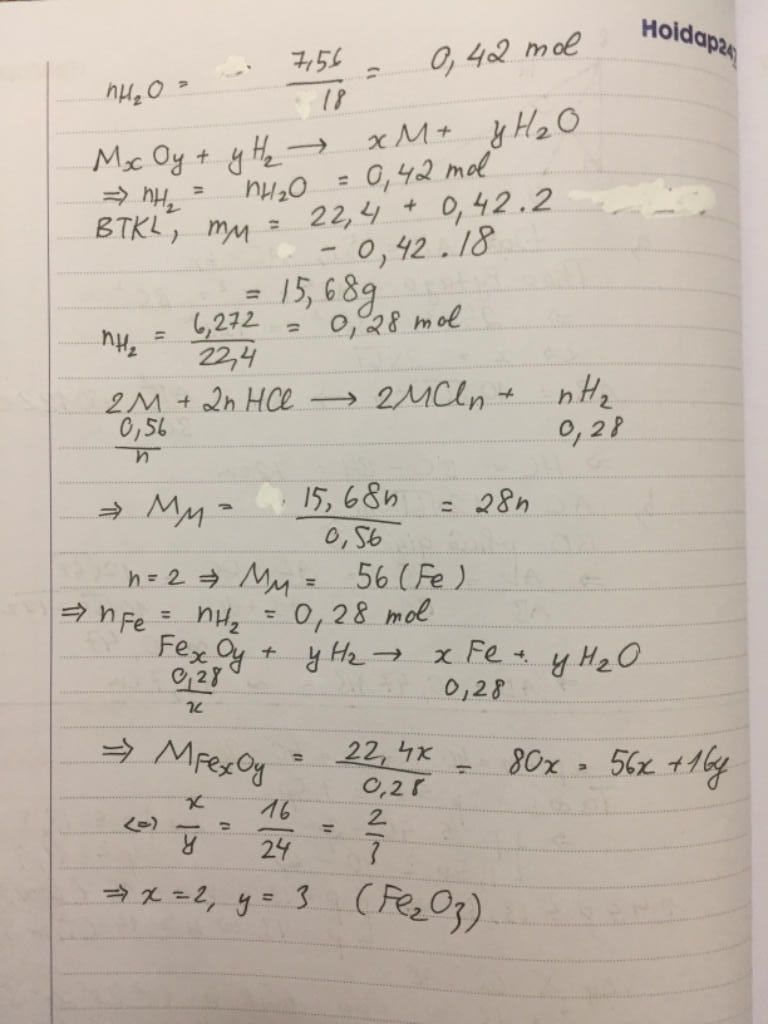 Hoidap247
nH₂O = 7,56/18 = 0,42 mol
MxOy + yH₂ → xM + yH₂O
⇒ nH₂ = nH₂O = 0,42 mol
BTKL, mM = 22,4 + 0,42.2
- 0,42.18
= 15,68g
nH₂ = 6,272/22,4 = 0,28 mol
2M + 2nHCl → 2MCln + nH₂
0,56/n 0,28
⇒ MM = 15,68n/0,56 = 28n
n=2 ⇒ MM = 56 (Fe)
⇒ nFe = nH₂ = 0,28 mol
FexOy + yH₂ → xFe + yH₂O
0,28/x 0,28
⇒ MFexOy = 22,4x/0,28 = 80x = 56x + 16y
<=> x/y = 16/24 = 2/3
⇒ x=2, y=3 (Fe₂O₃)